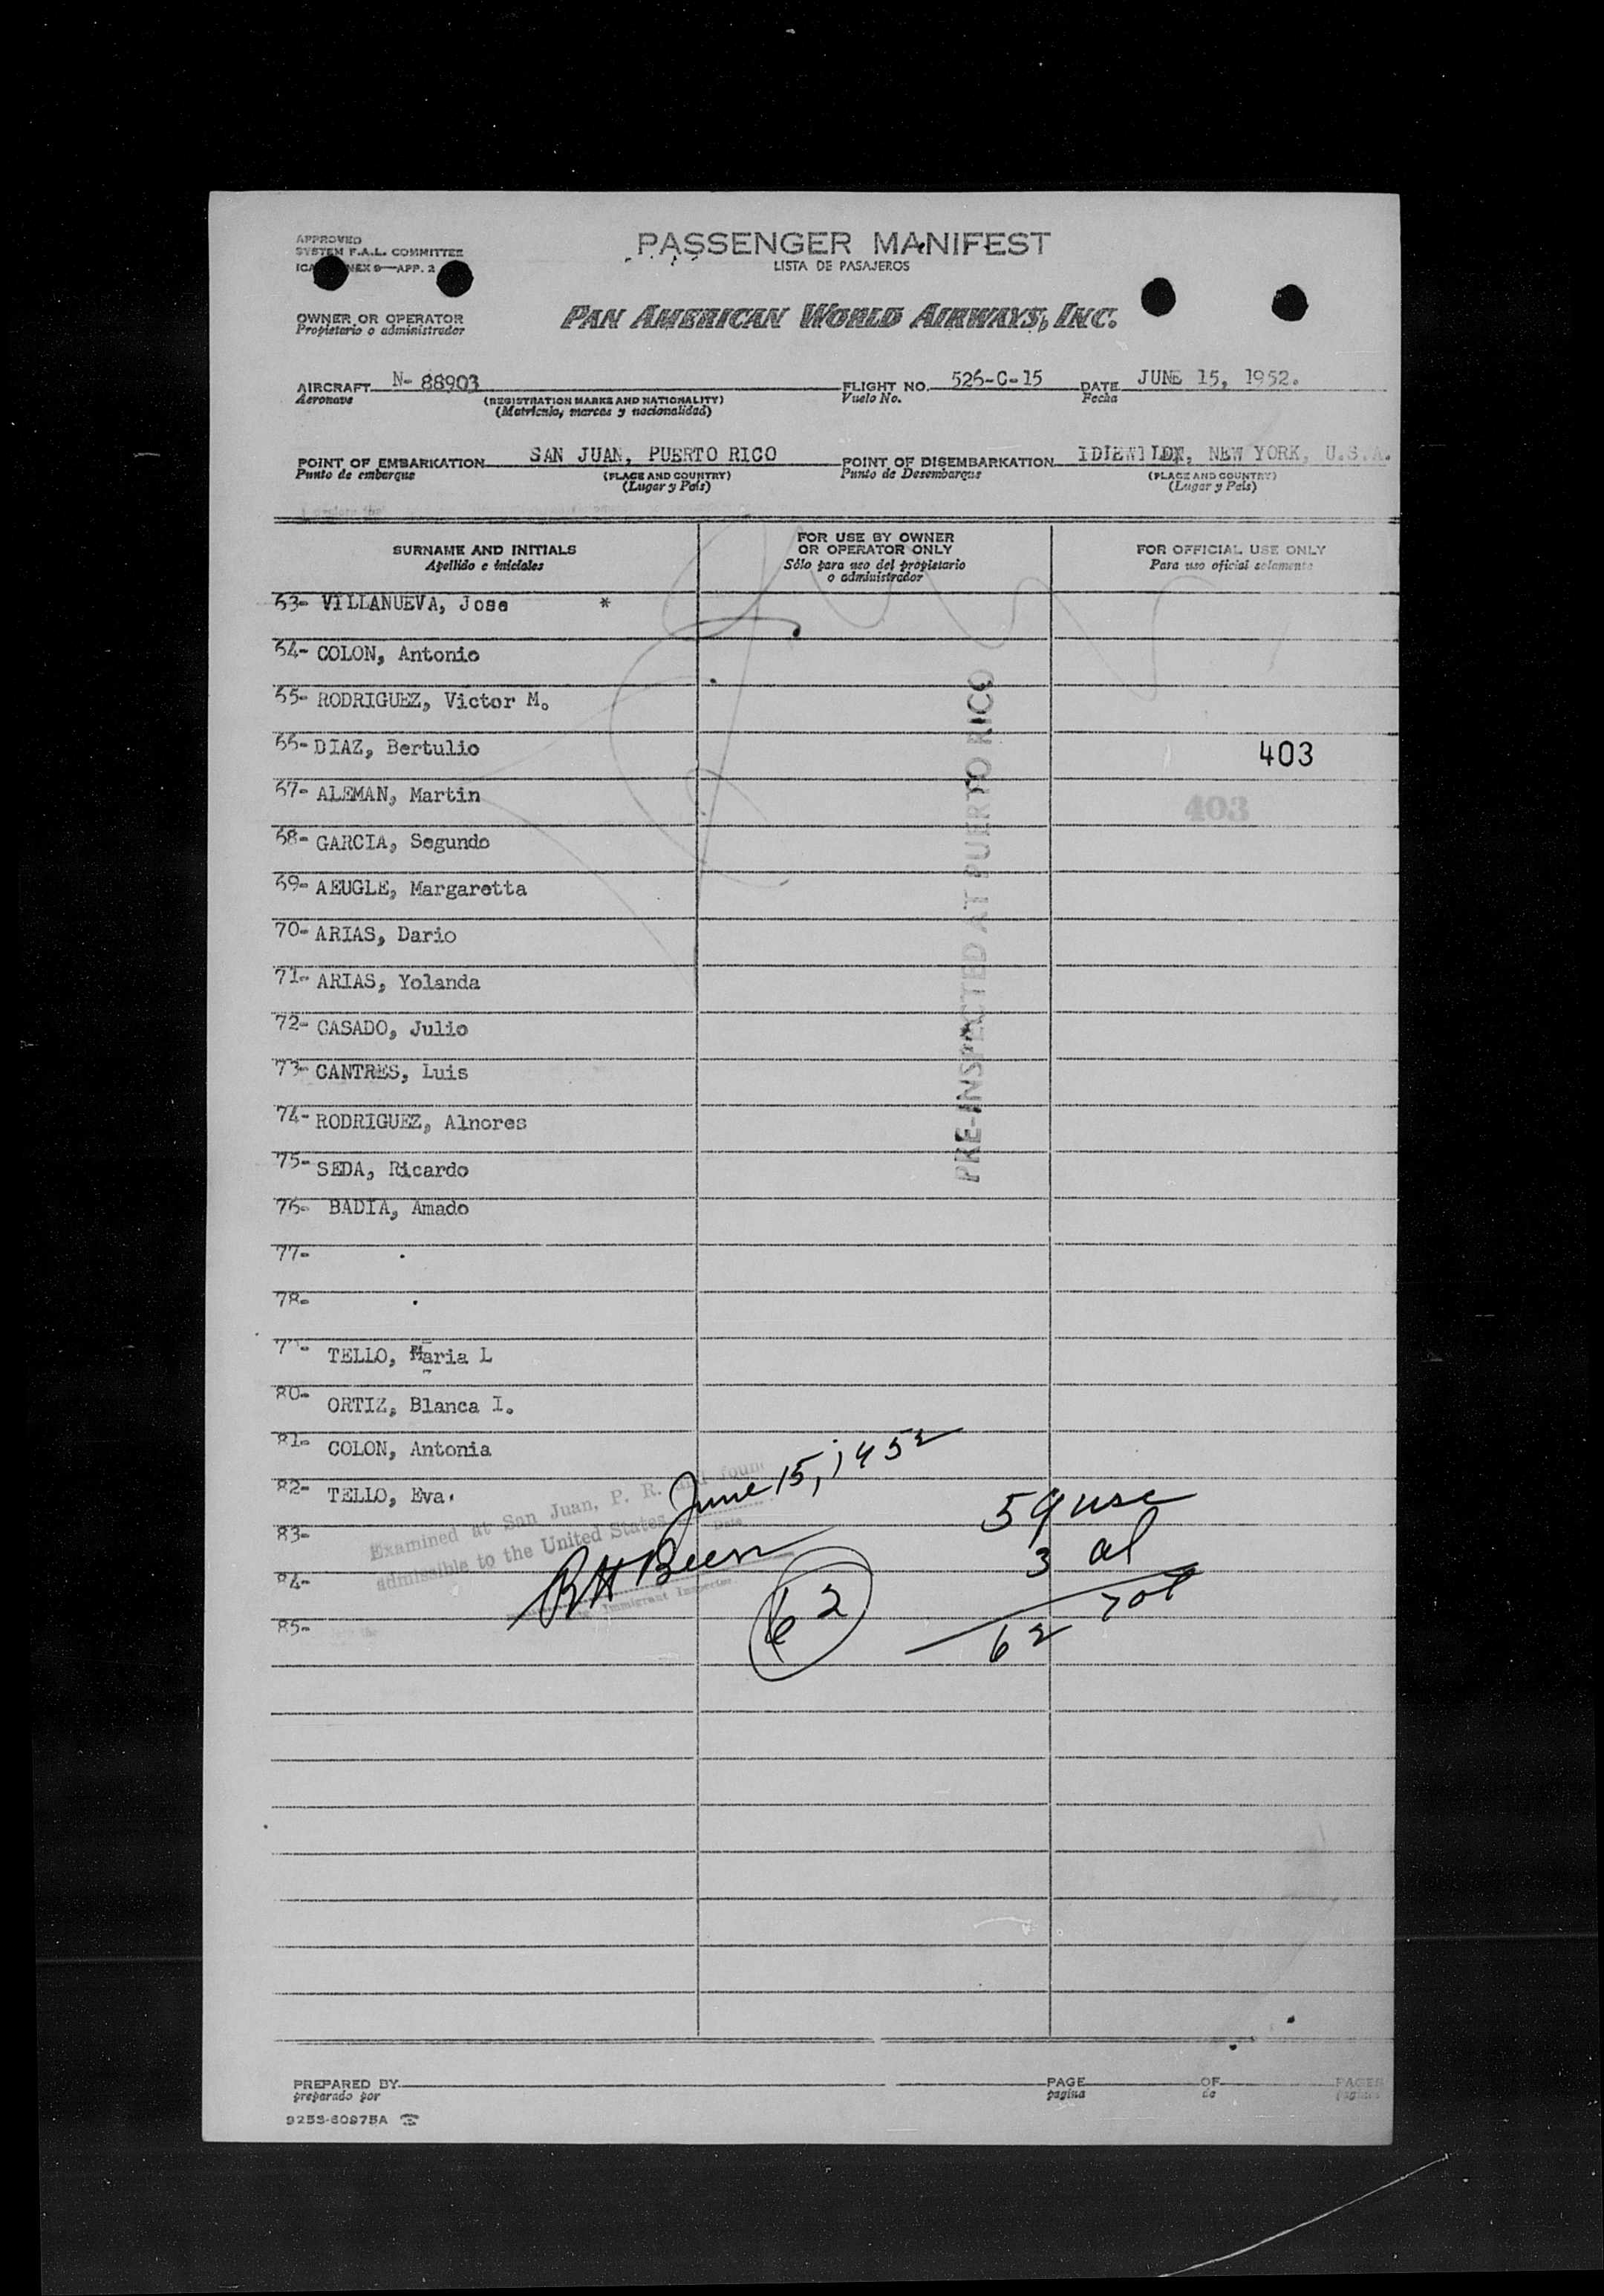 APPROVED
SYSTEM F.A.L. COMMITTEE
9—APP. 2
PASSENGER MANIFEST
LISTA DE PASAJEROS
OWNER OR OPERATOR
Propietario o administrador
PAN AMERICAN WORLD AIRWAYS, INC.
AIRCRAFT N- 88903 FLIGHT NO. 526-C-15 DATE JUNE 15, 1952.
Aeronave (REGISTRATION MARKS AND NATIONALITY) Vuelo No. Fecha
(Matrícula, marcas y nacionalidad)
POINT OF EMBARKATION SAN JUAN, PUERTO RICO POINT OF DISEMBARKATION NEW YORK, U.S.A.
Punto de embarque (PLACE AND COUNTRY) Punto de Desembarque (PLACE AND COUNTRY)
(Lugar y País) (Lugar y País)
SURNAME AND INITIALS FOR USE BY OWNER OR OPERATOR ONLY FOR OFFICIAL USE ONLY
Apellido e iniciales Sólo para uso del propietario o administrador Para uso oficial solamente
63- VILLANUEVA, Jose *
64- COLON, Antonio
65- RODRIGUEZ, Victor M.
66- DIAZ, Bertulio 403
67- ALEMAN, Martin 403
68- GARCIA, Segundo
69- AEUGLE, Margaretta
70- ARIAS, Dario
71- ARIAS, Yolanda
72- CASADO, Julio
73- CANTRES, Luis
74- RODRIGUEZ, Alnores
75- SEDA, Ricardo
76- BADIA, Amado
PRE-INSPECTED AT PUERTO RICO
77-
78-
TELLO, Maria L
80- ORTIZ, Blanca I.
81- COLON, Antonia
82- TELLO, Eva.
83-
84-
85-
Examined at San Juan, P. R. and found
admissible to the United States
June 15, 1952
Date
Immigrant Inspector.
62
59 usc
3 al
62 Tot
PREPARED BY PAGE OF PAGES
preparado por pagina de paginas
9253-60975A